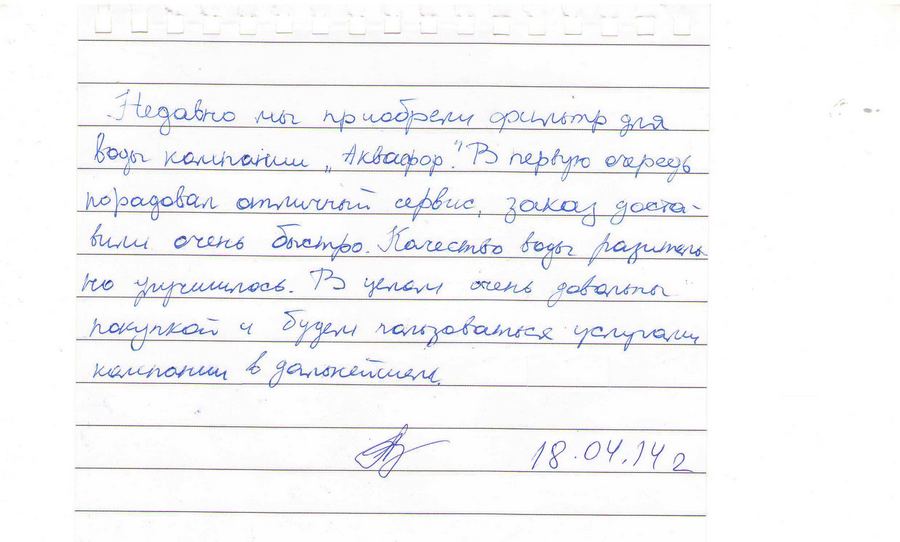 Недавно мы приобрели фильтр для
воды компании „Аквафор". В первую очередь
порадовал отличный сервис, заказ доста-
вили очень быстро. Качество воды разитель
но улучшилось. В целом очень довольны
покупкой и будем пользоваться услугами
компании в дальнейшем.
18.04.14 г